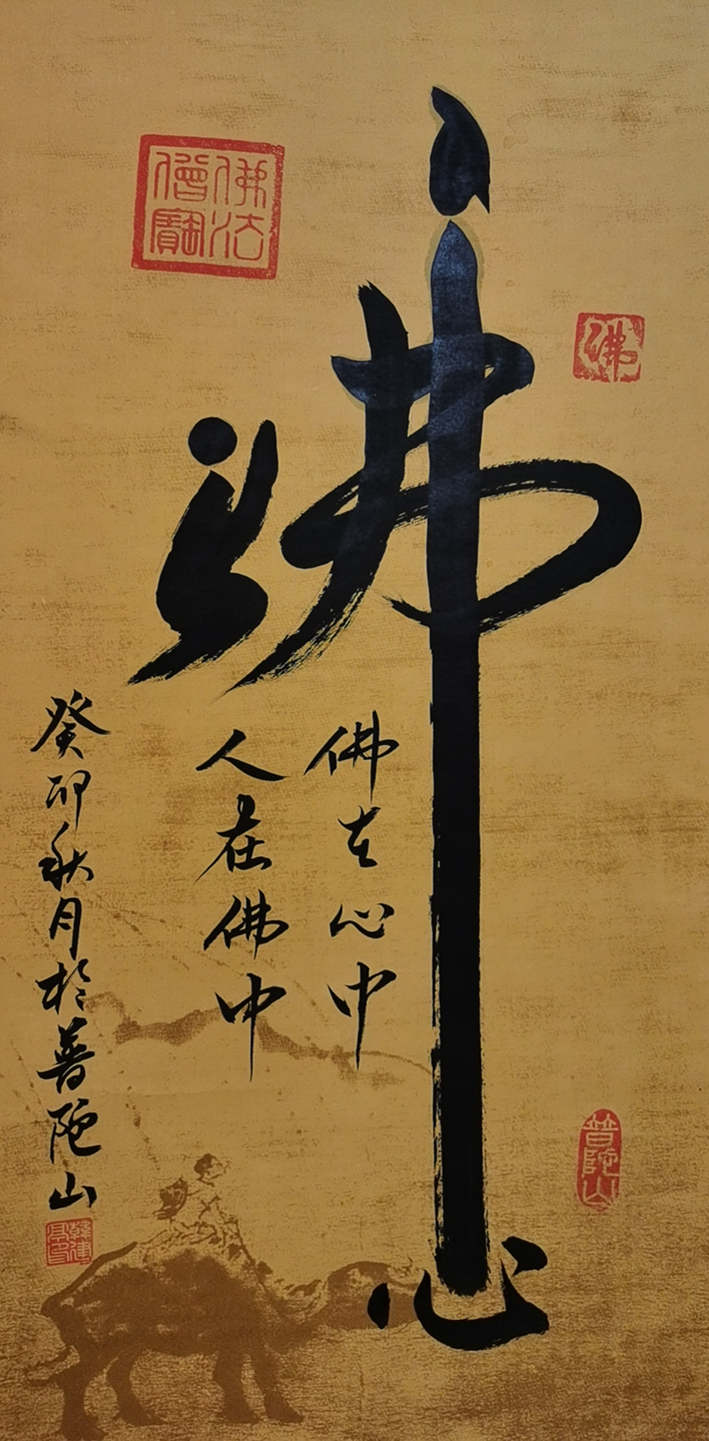 佛心
佛在心中
人在佛中
癸卯秋月於普陀山
佛法僧寶
佛
普陀山